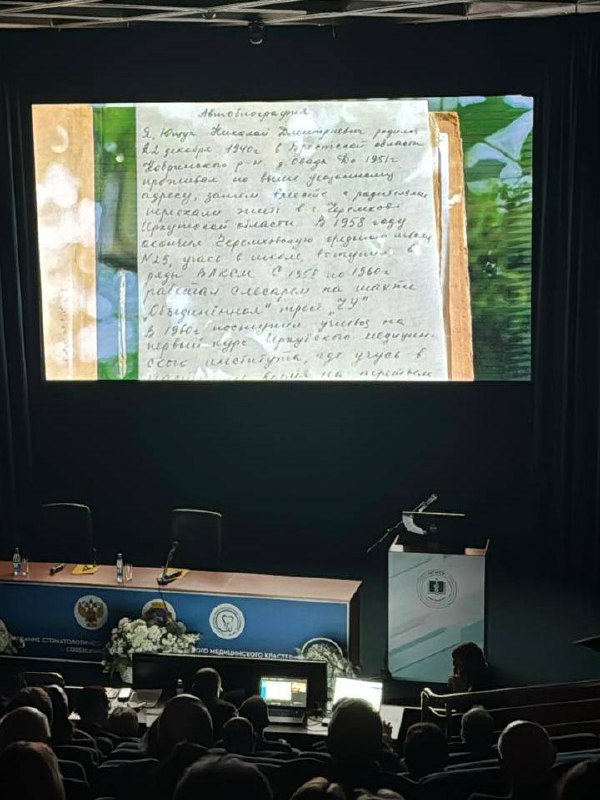 Автобиография
Я, Ющук Николай Дмитриевич родился
22 декабря 1940г в Брестской области
Кобринского р-н д. Осада До 1951г
проживал по выше указанному
адресу, затем вместе с родителями
переехали жить в г. Черемхово
Иркутской области В 1958 году
окончил Черемховскую среднюю школу
№23, учась в школе, вступил в
ряды ВЛКСМ С 1958 по 1960г
работал слесарем на шахте
"Объединённая" трест "ВУ"
В 1960г поступил учиться на
первый курс Иркутского медицин-
ского института, где учусь в
время на третьем
СТОМАТОЛОГИЧ
ОГО МЕДИЦИНСКОГО КЛАСТЕР
СОВЕЩАН